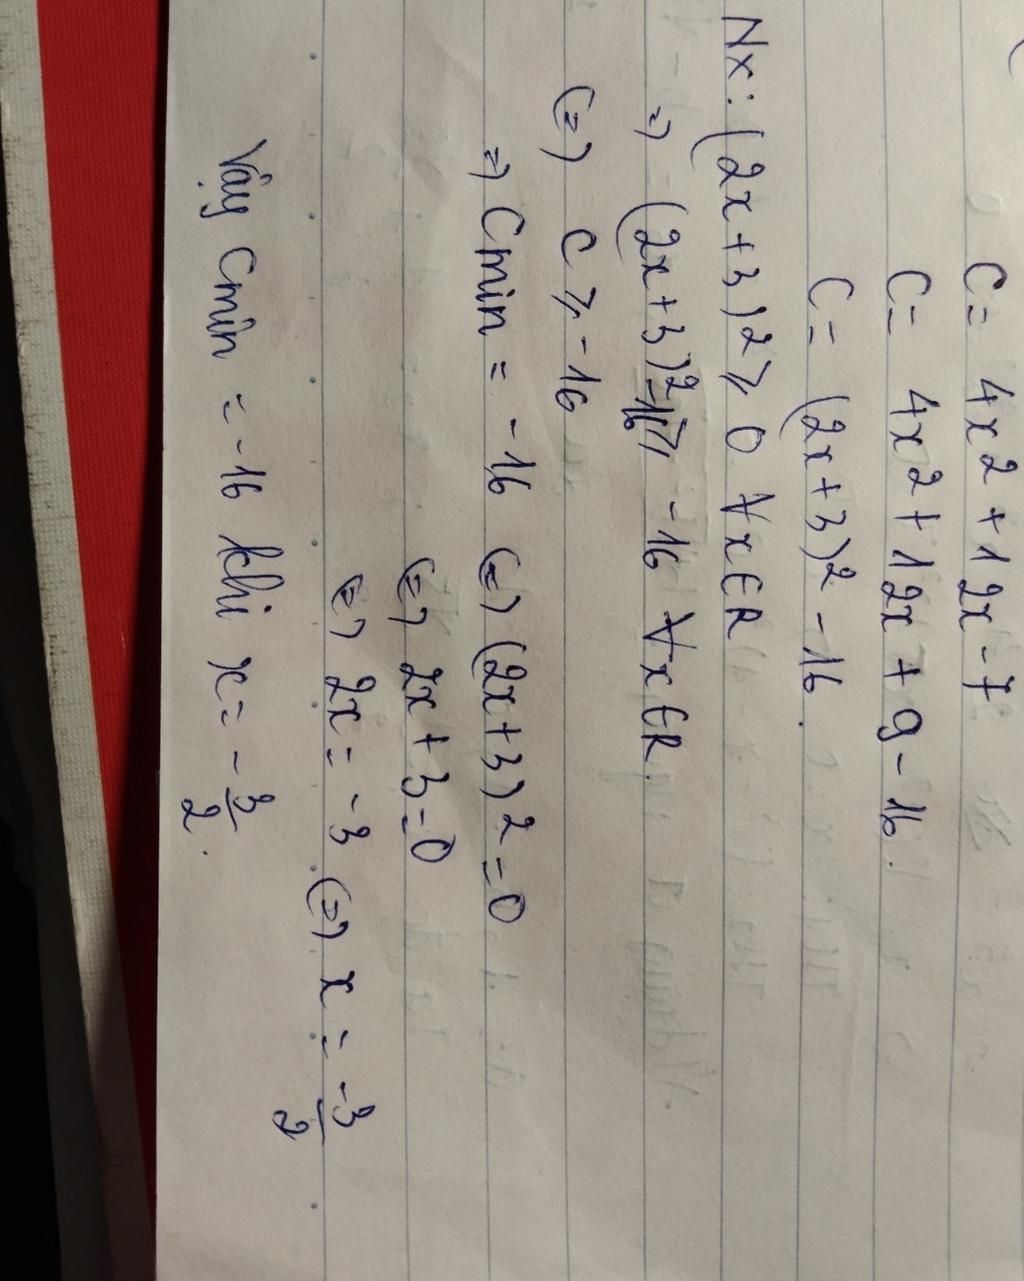 C = 4x² + 12x - 7
C = 4x² + 12x + 9 - 16.
C = (2x + 3)² - 16.
Nx: (2x + 3)² ≥ 0 ∀x ∈ R
=> (2x + 3)² - 16 ≥ -16 ∀x ∈ R.
(=) C ≥ -16
=> Cmin = -16 (=) (2x + 3)² = 0
(=) 2x + 3 = 0
(=) 2x = -3 (=) x = -3/2
Vậy Cmin = -16 khi x = -3/2.